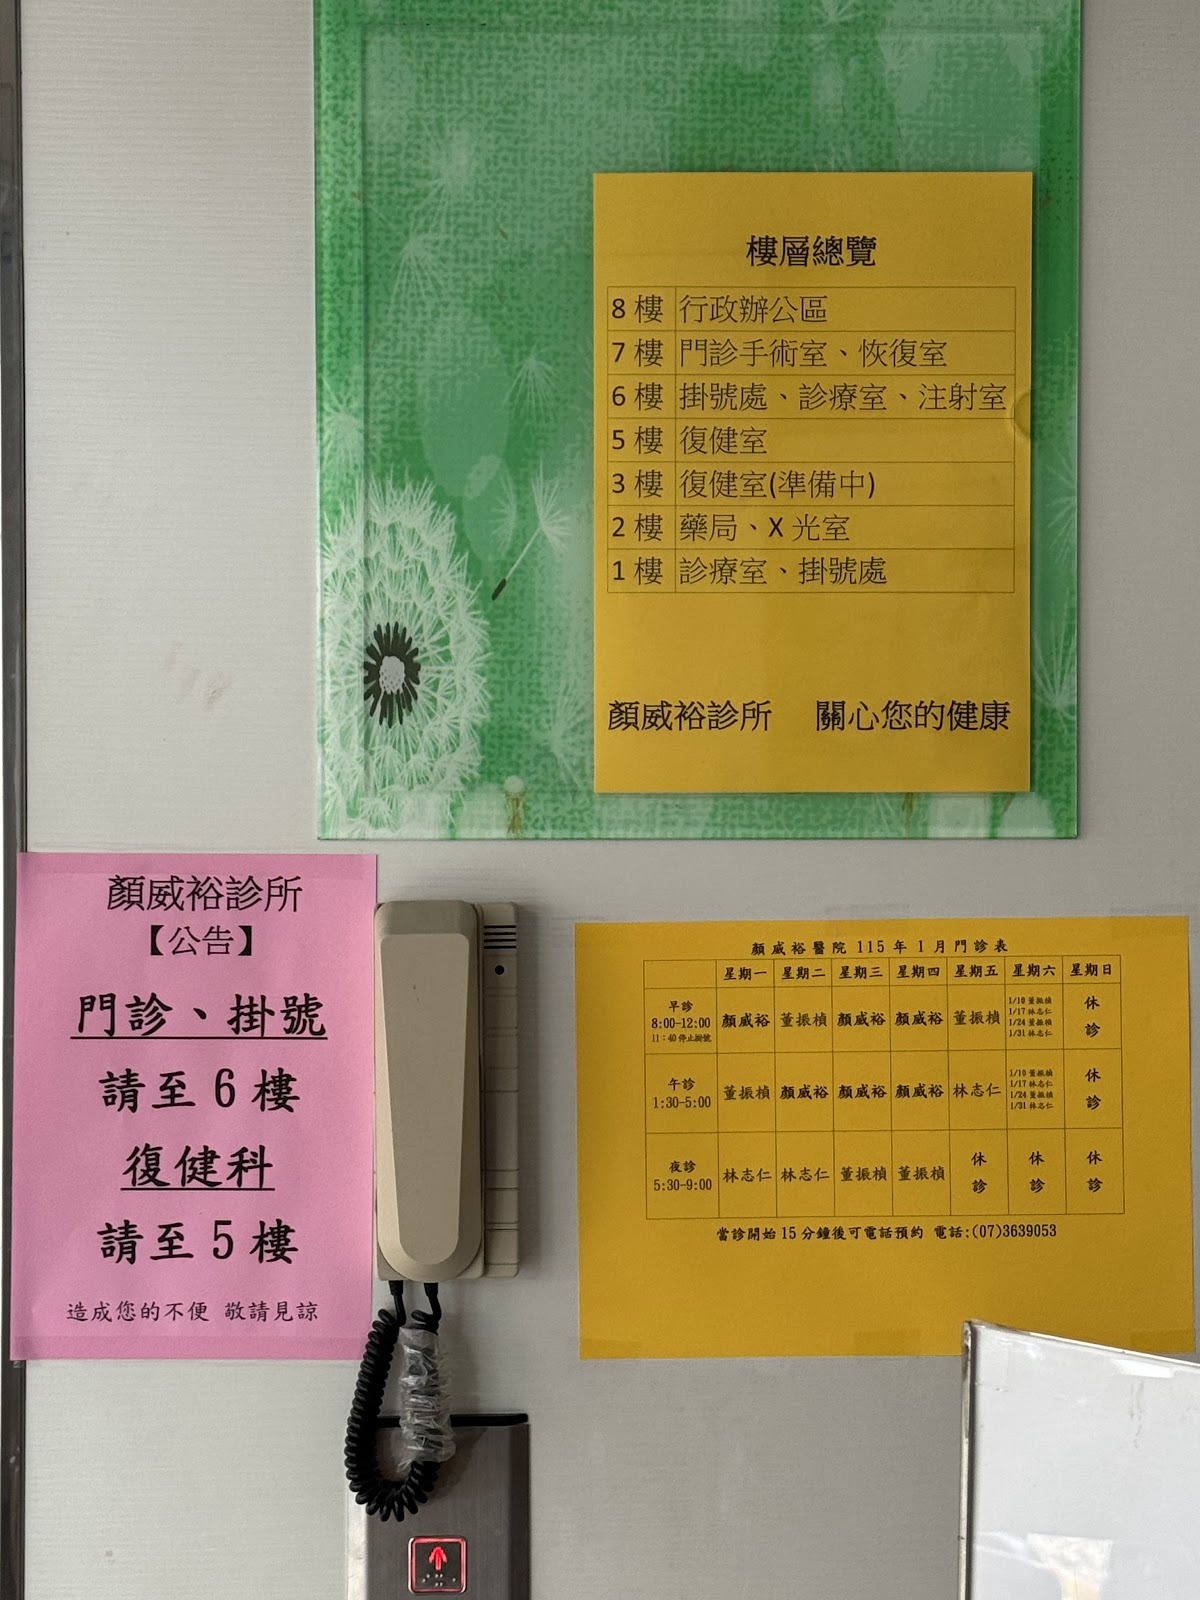 樓層總覽
8樓 行政辦公區
7樓 門診手術室、恢復室
6樓 掛號處、診療室、注射室
5樓 復健室
3樓 復健室(準備中)
2樓 藥局、X光室
1樓 診療室、掛號處
顏威裕診所 關心您的健康
顏威裕診所
【公告】
門診、掛號
請至6樓
復健科
請至5樓
造成您的不便 敬請見諒
顏威裕醫院 115年1月門診表
星期一 星期二 星期三 星期四 星期五 星期六 星期日
早診 8:00-12:00 11:40停止掛號 顏威裕 董振楨 顏威裕 顏威裕 董振楨 1/10 董振楨 1/17 林志仁 1/24 董振楨 1/31 林志仁 休診
午診 1:30-5:00 董振楨 顏威裕 顏威裕 顏威裕 林志仁 1/10 董振楨 1/17 林志仁 1/24 董振楨 1/31 林志仁 休診
夜診 5:30-9:00 林志仁 林志仁 董振楨 董振楨 休診 休診 休診
當診開始15分鐘後可電話預約 電話:(07)3639053